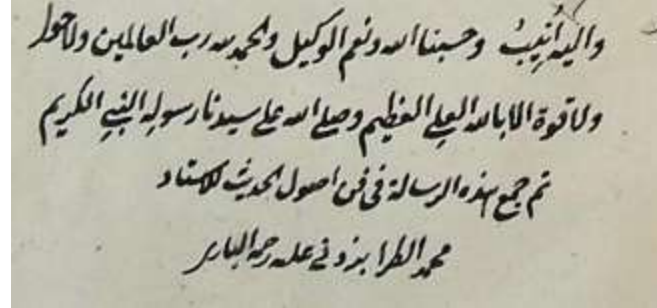 واليه أُنِيبُ وحسبنا الله ونعم الوكيل والحمد لله رب العالمين ولاحول
ولا قوة الا بالله العلي العظيم وصلى الله على سيدنا رسوله النبي الكريم
تم جميع هذه الرسالة في فن اصول الحديث للاستاد
محمد الطرابزوني عليه رحمة الباري